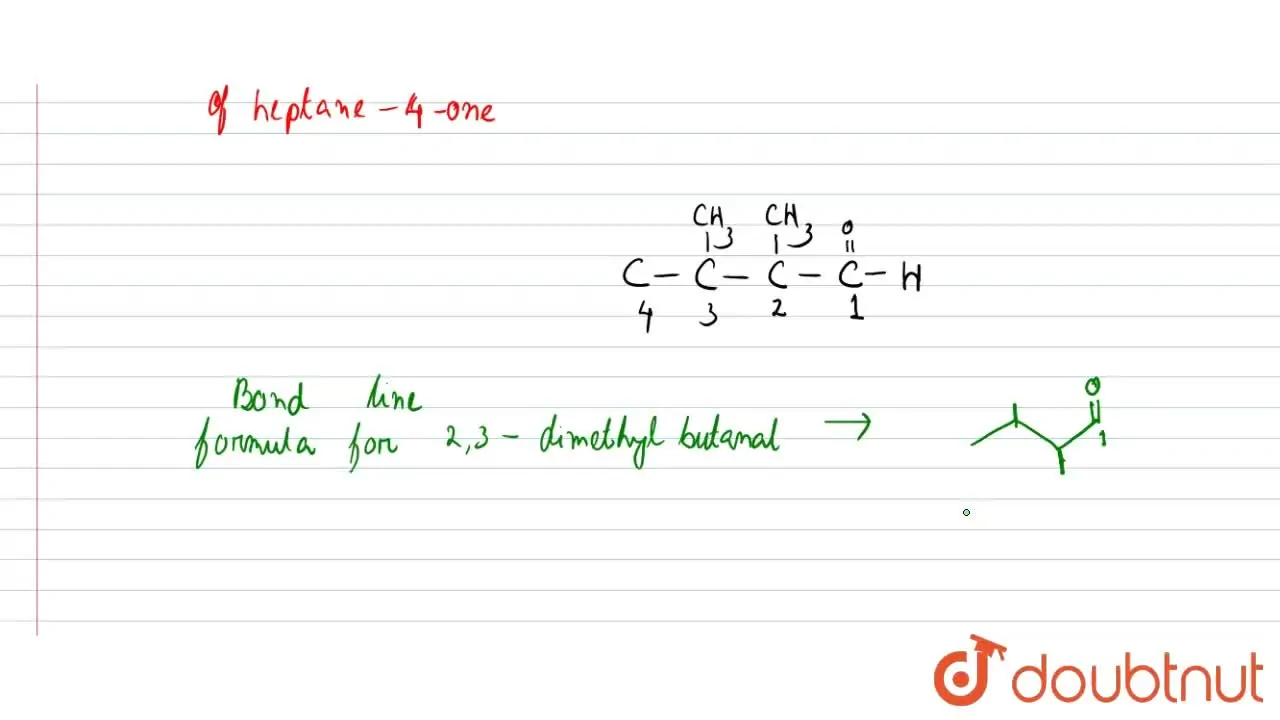 of heptane - 4 - one
CH3 CH3 O
C - C - C - C - H
4 3 2 1
Bond line
formula for 2,3 - dimethyl butanal →
O
1
doubtnut